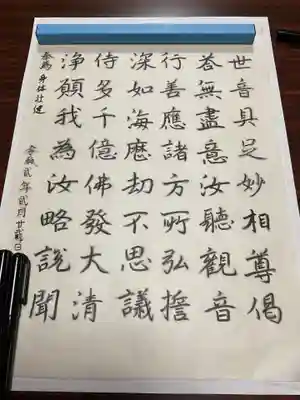 世音具足妙相尊偈
荅無盡意汝聽觀音
行善應諸方所弘誓
深如海歴劫不思議
侍多千億佛發大清
淨願我為汝略說聞
為 身体壮健
年弐月廿日